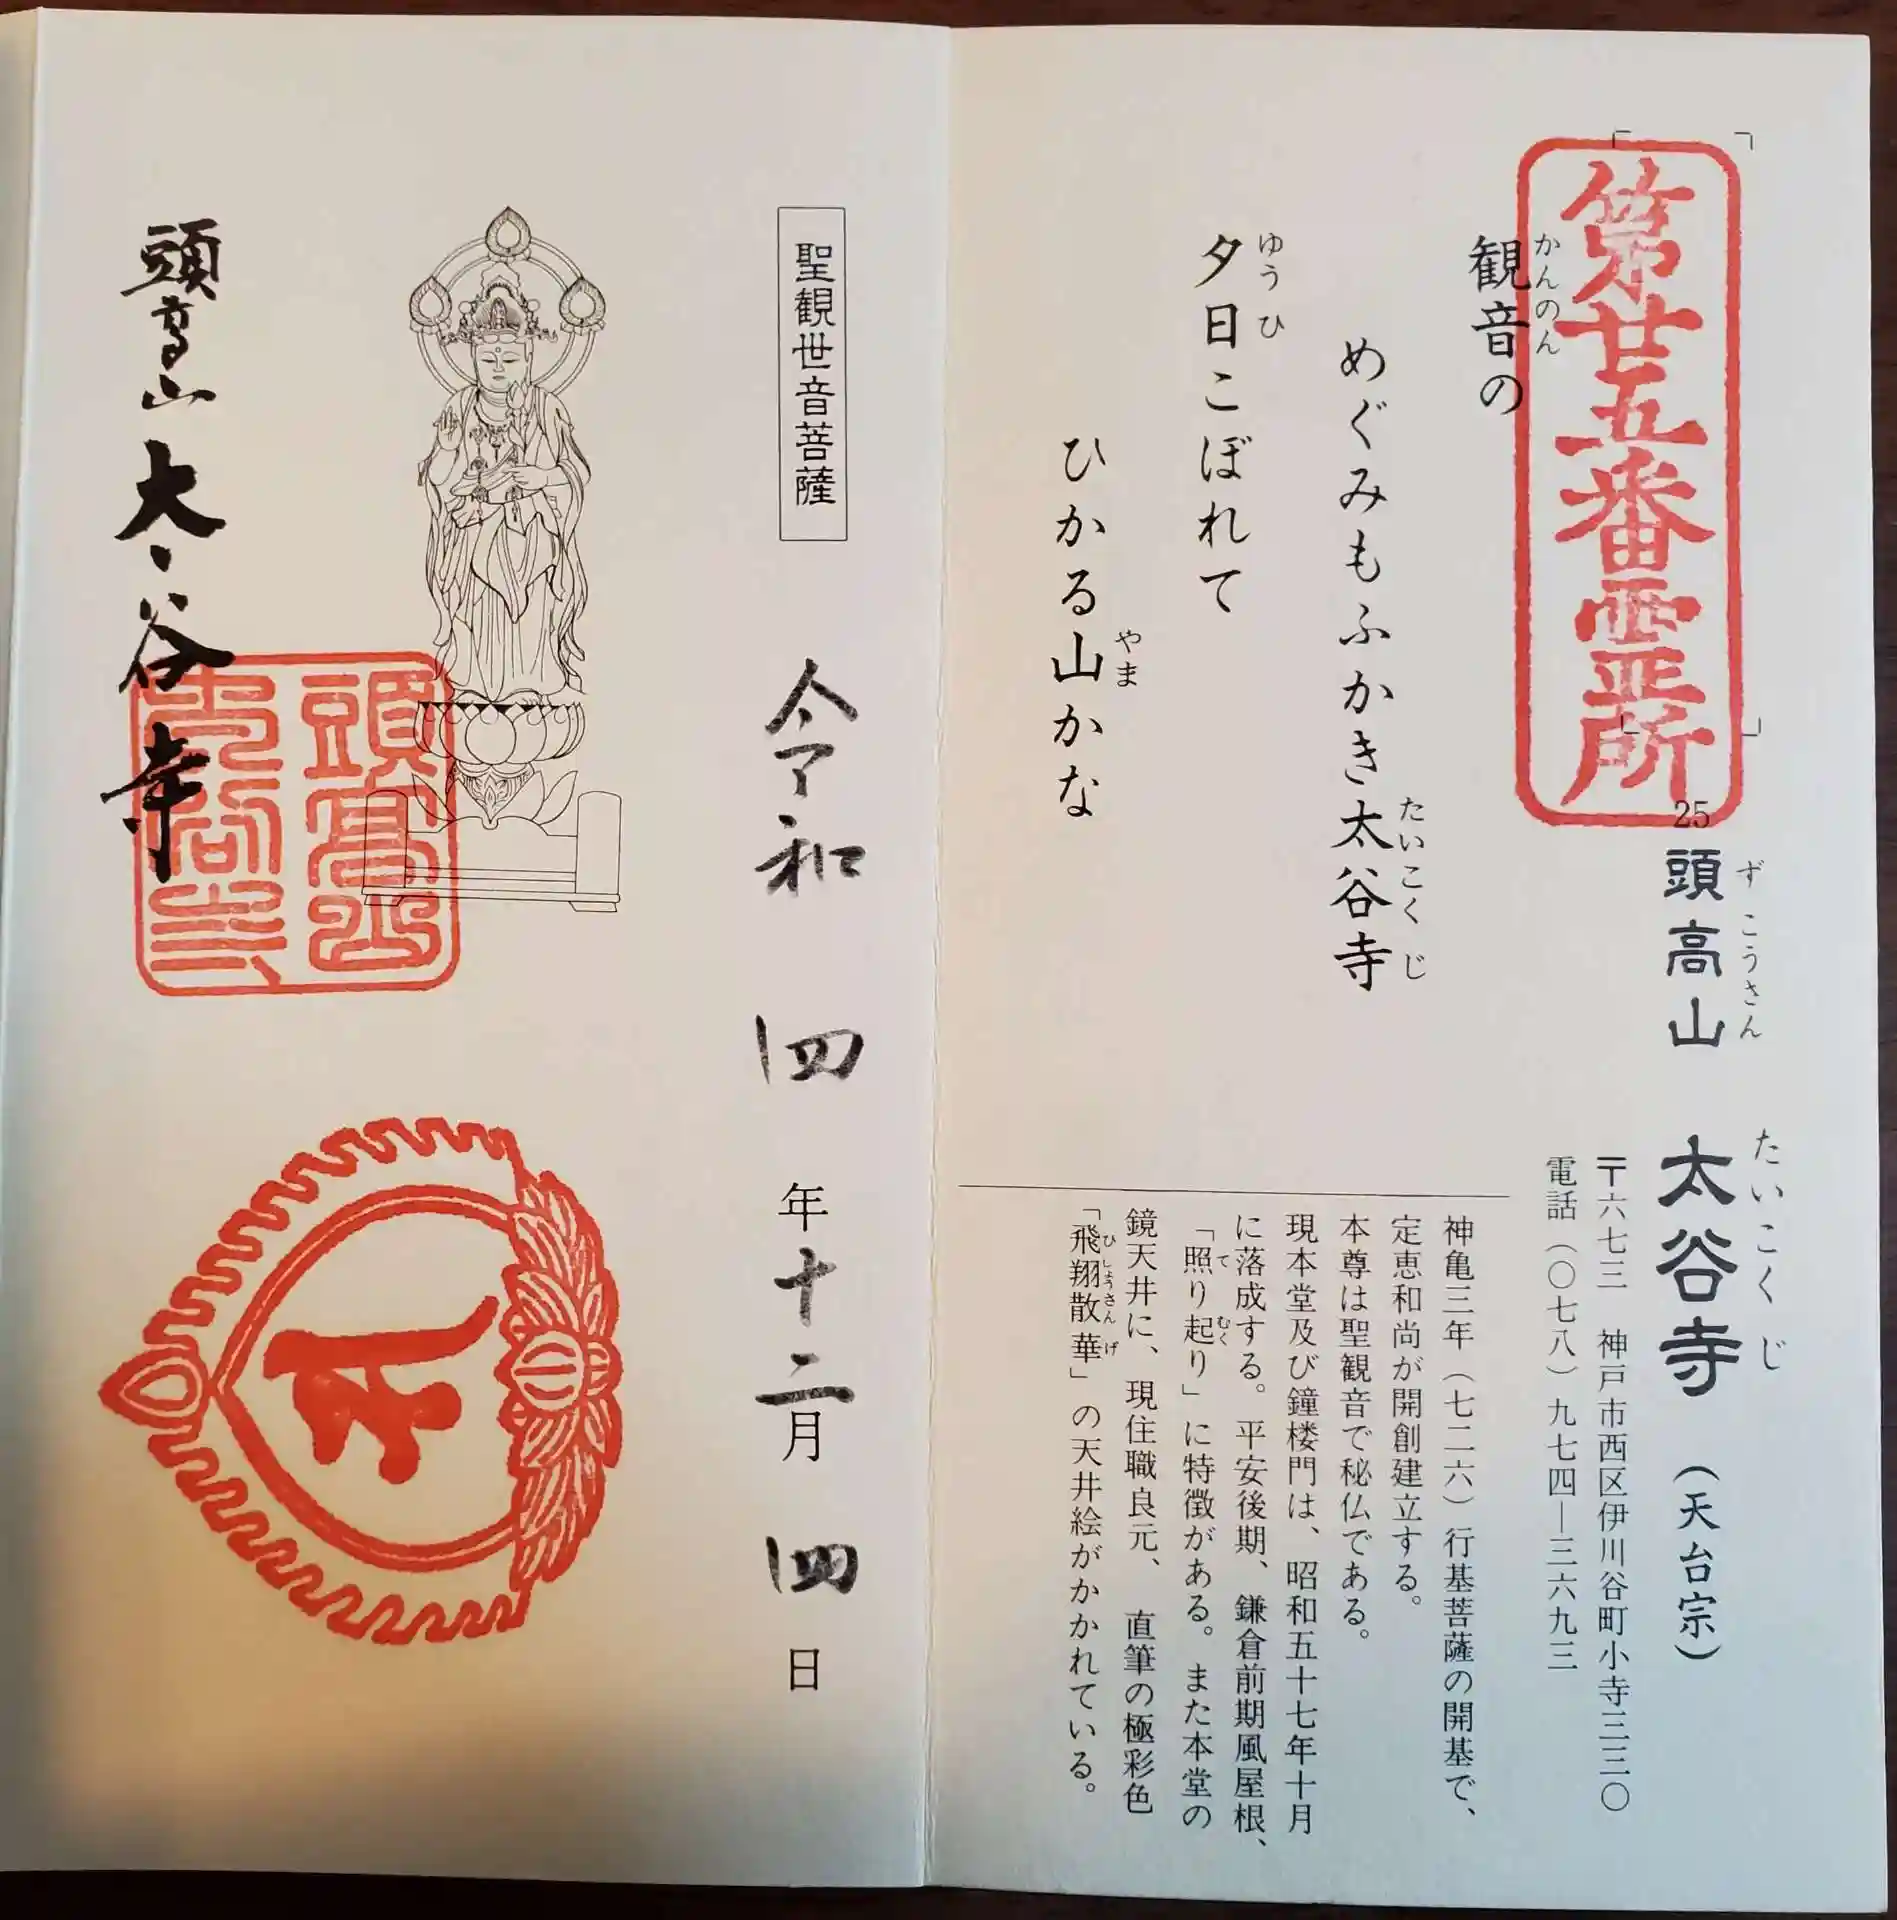 第廿五番霊所
25 頭高山 太谷寺 (天台宗)
ずこうさん たいこくじ
〒六七三 神戸市西区伊川谷町小寺三三〇
電話(〇七八)九七四―三六九三
観音の
かんのん
めぐみもふかき太谷寺
たいこくじ
夕日こぼれて
ゆうひ
ひかる山かな
やま
神亀三年(七二六)行基菩薩の開基で、
定恵和尚が開創建立する。
本尊は聖観音で秘仏である。
現本堂及び鐘楼門は、昭和五十七年十月
に落成する。平安後期、鎌倉前期風屋根、
「照り起り」に特徴がある。また本堂の
て むく
鏡天井に、現住職良元、直筆の極彩色
「飛翔散華」の天井絵がかかれている。
ひしょうさんげ
聖観世音菩薩
令和四年十二月四日
頭高山
太谷寺
頭高山